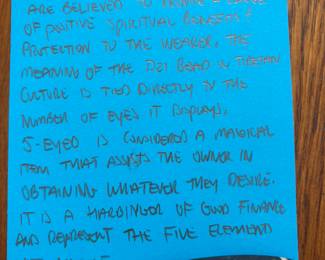 ARE BELIEVED TO PROVIDE A
OF POSITIVE SPIRITUAL BENEFITS &
PROTECTION TO THE WEARER. THE
MEANING OF THE DZI BEAD IN TIBETAN
CULTURE IS TIED DIRECTLY TO THE
NUMBER OF EYES IT DISPLAYS.
5-EYED IS CONSIDERED A MAGICAL
ITEM THAT ASSISTS THE OWNER IN
OBTAINING WHATEVER THEY DESIRE.
IT IS A HARBINGOR OF GOOD FINANCE
AND REPRESENT THE FIVE ELEMENT